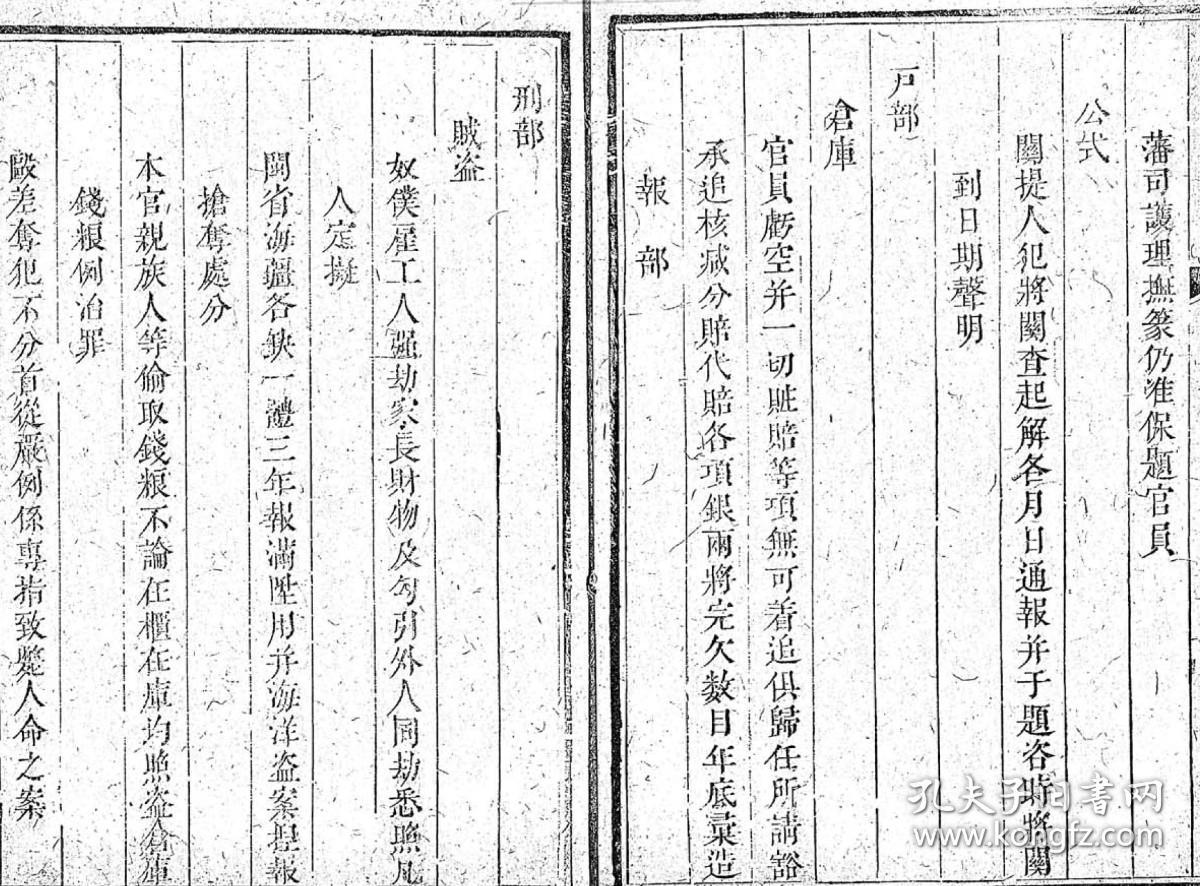 藩司護理撫篆仍准保題官員
公式
關提人犯將關查起解各月日通報并于題咨時將關
到日期聲明
戸部
倉庫
官員虧空并一切賍賠等項無可着追俱歸任所請豁
承追核减分賠代賠各項銀兩將完欠數目年底彚造
報部
刑部
賊盗
奴僕雇工人强劫家長財物及勾引外人同劫悉照凡
人定擬
閩省海疆各缺一體三年報滿陞用并海洋盗案捏報
搶奪處分
本官親族人等偷取錢粮不論在櫃在庫均照盗倉庫
錢粮例治罪
毆差奪犯不分首從嚴例係專指致斃人命之案
孔夫子旧书网
www.kongfz.com